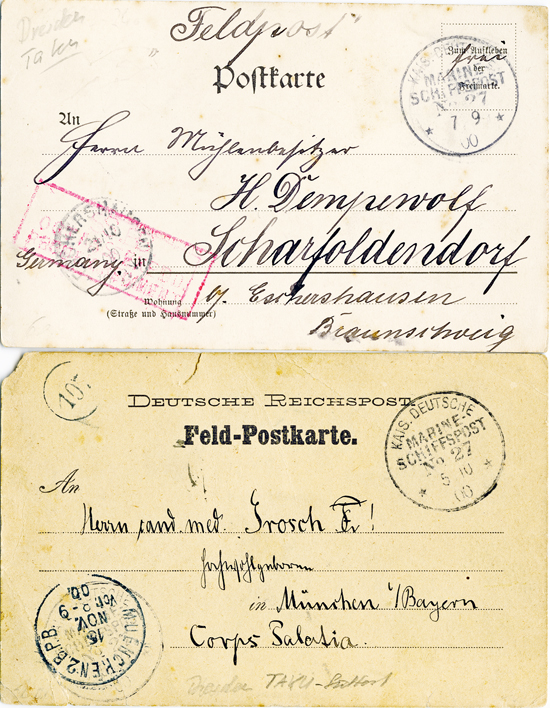 Dresden
Taku
"Feldpost"
Zum Aufkleben
der
Freimarke.
frei
Postkarte
KAIS. DEUTSCHE
MARINE-
SCHIFFSPOST
No 27
7 9
00
An
Herrn Mühlenbesitzer
H. Dempewolf
Germany. in Scharfoldendorf
Wohnung
(Straße und Hausnummer)
b/ Eschershausen
Braunschweig
107
DEUTSCHE REICHSPOST.
Feld-Postkarte.
KAIS. DEUTSCHE
MARINE-
SCHIFFSPOST
No 27
5 10
00
An
Herrn cand. med. Grosch Fr!
Hochwohlgeboren
in München i/Bayern
Corps Palatia.
MUENCHEN 2. B.P.B.
15
NOV.
Vor. 8-9
00.
Dresden TAKU